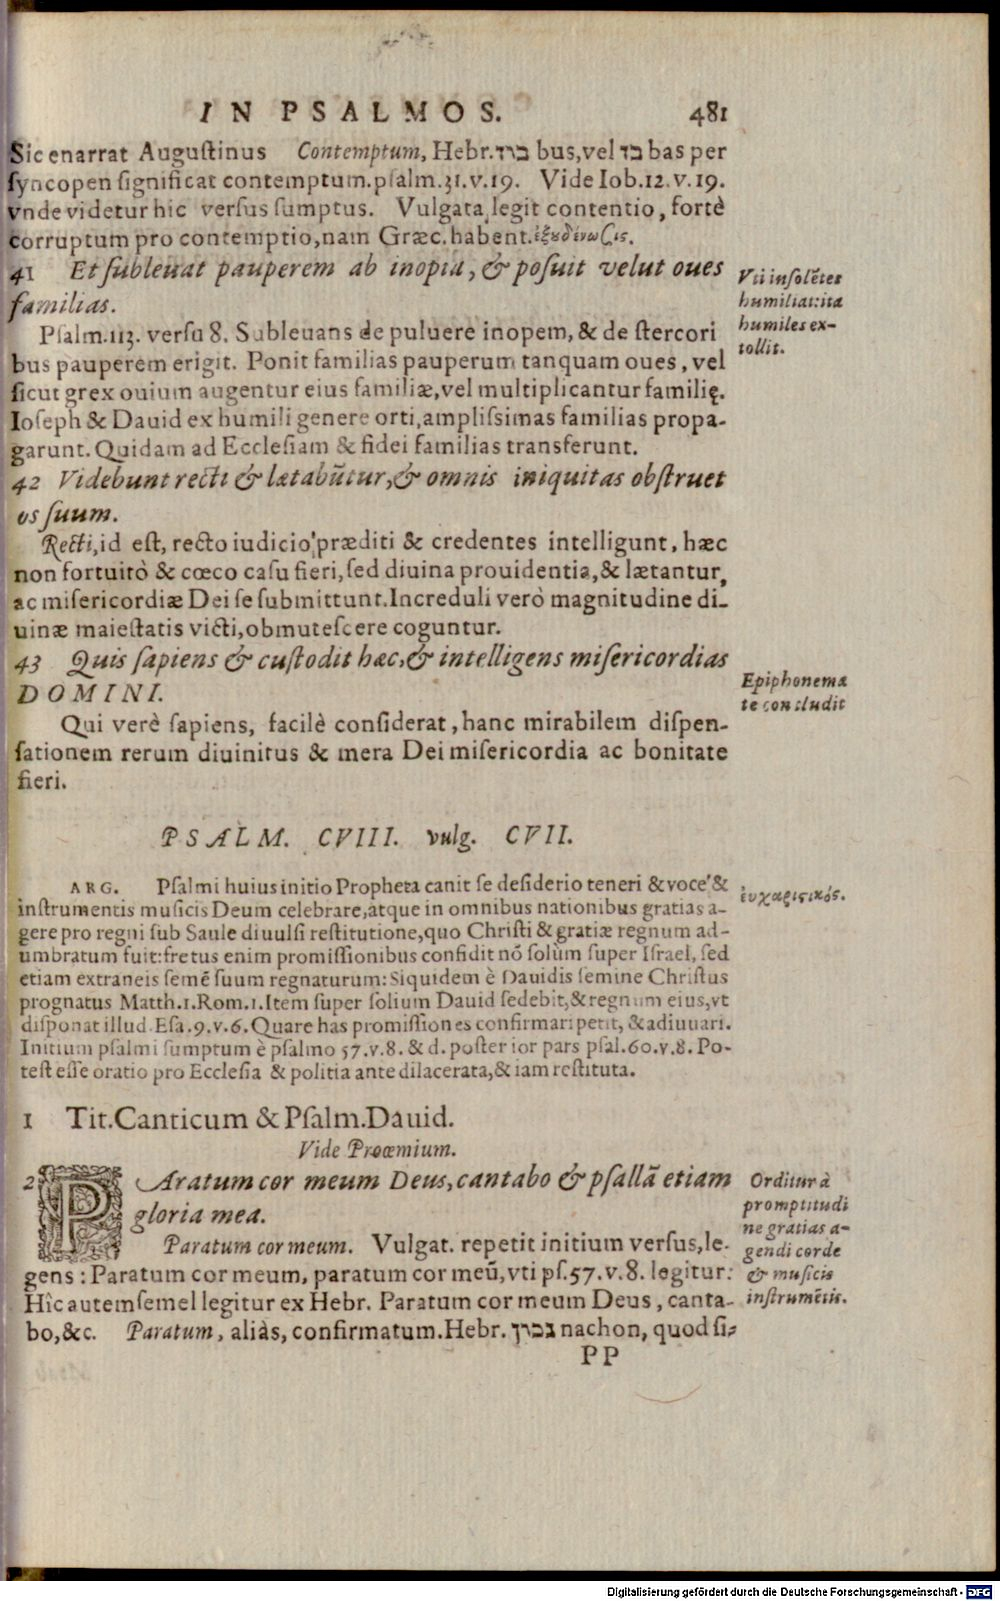 IN PSALMOS. 481
Sic enarrat Auguſtinus Contemptum, Hebr. בוז bus, vel בז bas per
ſyncopen ſignificat contemptum. pſalm. 31. v. 19. Vide Iob. 12. v. 19.
vnde videtur hic verſus ſumptus. Vulgata legit contentio, fortè
corruptum pro contemptio, nam Græc. habent.
41 Et ſubleuat pauperem ab inopia, & poſuit velut oues
familias.
Vti inſolẽtes
humiliat: ita
humiles ex-
tollit.
Pſalm. 113. verſu 8. Subleuans de puluere inopem, & de ſtercori
bus pauperem erigit. Ponit familias pauperum tanquam oues, vel
ſicut grex ouium augentur eius familiæ, vel multiplicantur familię.
Ioſeph & Dauid ex humili genere orti, ampliſsimas familias propa-
garunt. Quidam ad Eccleſiam & fidei familias transferunt.
42 Videbunt recti & lætabũtur, & omnis iniquitas obſtruet
os ſuum.
Recti, id eſt, recto iudicio præditi & credentes intelligunt, hæc
non fortuitò & cœco caſu fieri, ſed diuina prouidentia, & lætantur,
ac miſericordiæ Dei ſe ſubmittunt. Increduli verò magnitudine di-
uinæ maieſtatis victi, obmuteſcere coguntur.
43 Quis ſapiens & cuſtodit hæc, & intelligens miſericordias
DOMINI.
Epiphonema
te concludit
Qui verè ſapiens, facilè conſiderat, hanc mirabilem diſpen-
ſationem rerum diuinitus & mera Dei miſericordia ac bonitate
fieri.
PSALM. CVIII. vulg. CVII.
ARG. Pſalmi huius initio Propheta canit ſe deſiderio teneri & voce &
inſtrumentis muſicis Deum celebrare, atque in omnibus nationibus gratias a-
gere pro regni ſub Saule diuulſi reſtitutione, quo Chriſti & gratiæ regnum ad-
umbratum fuit: fretus enim promiſſionibus confidit nõ ſolùm ſuper Iſrael, ſed
etiam extraneis ſemẽ ſuum regnaturum: Siquidem è Dauidis ſemine Chriſtus
prognatus Matth. 1. Rom. 1. Item ſuper ſolium Dauid ſedebit, & regnum eius, vt
diſponat illud. Eſa. 9. v. 6. Quare has promiſſiones confirmari petit, & adiuuari.
Initium pſalmi ſumptum è pſalmo 57. v. 8. & d. poſterior pars pſal. 60. v. 8. Po-
teſt eſſe oratio pro Eccleſia & politia ante dilacerata, & iam reſtituta.
εὐχαριστικός.
1 Tit. Canticum & Pſalm. Dauid.
Vide Proœmium.
2 PAratum cor meum Deus, cantabo & pſallã etiam
gloria mea.
Orditur à
promptitudi
ne gratias a-
gendi corde
& muſicis
inſtrumẽtis.
Paratum cor meum. Vulgat. repetit initium verſus, le-
gens: Paratum cor meum, paratum cor meũ, vti pſ. 57. v. 8. legitur:
Hîc autem ſemel legitur ex Hebr. Paratum cor meum Deus, canta-
bo, &c. Paratum, aliàs, confirmatum. Hebr. נכון nachon, quod ſi-
PP
Digitalisierung gefördert durch die Deutsche Forschungsgemeinschaft - DFG